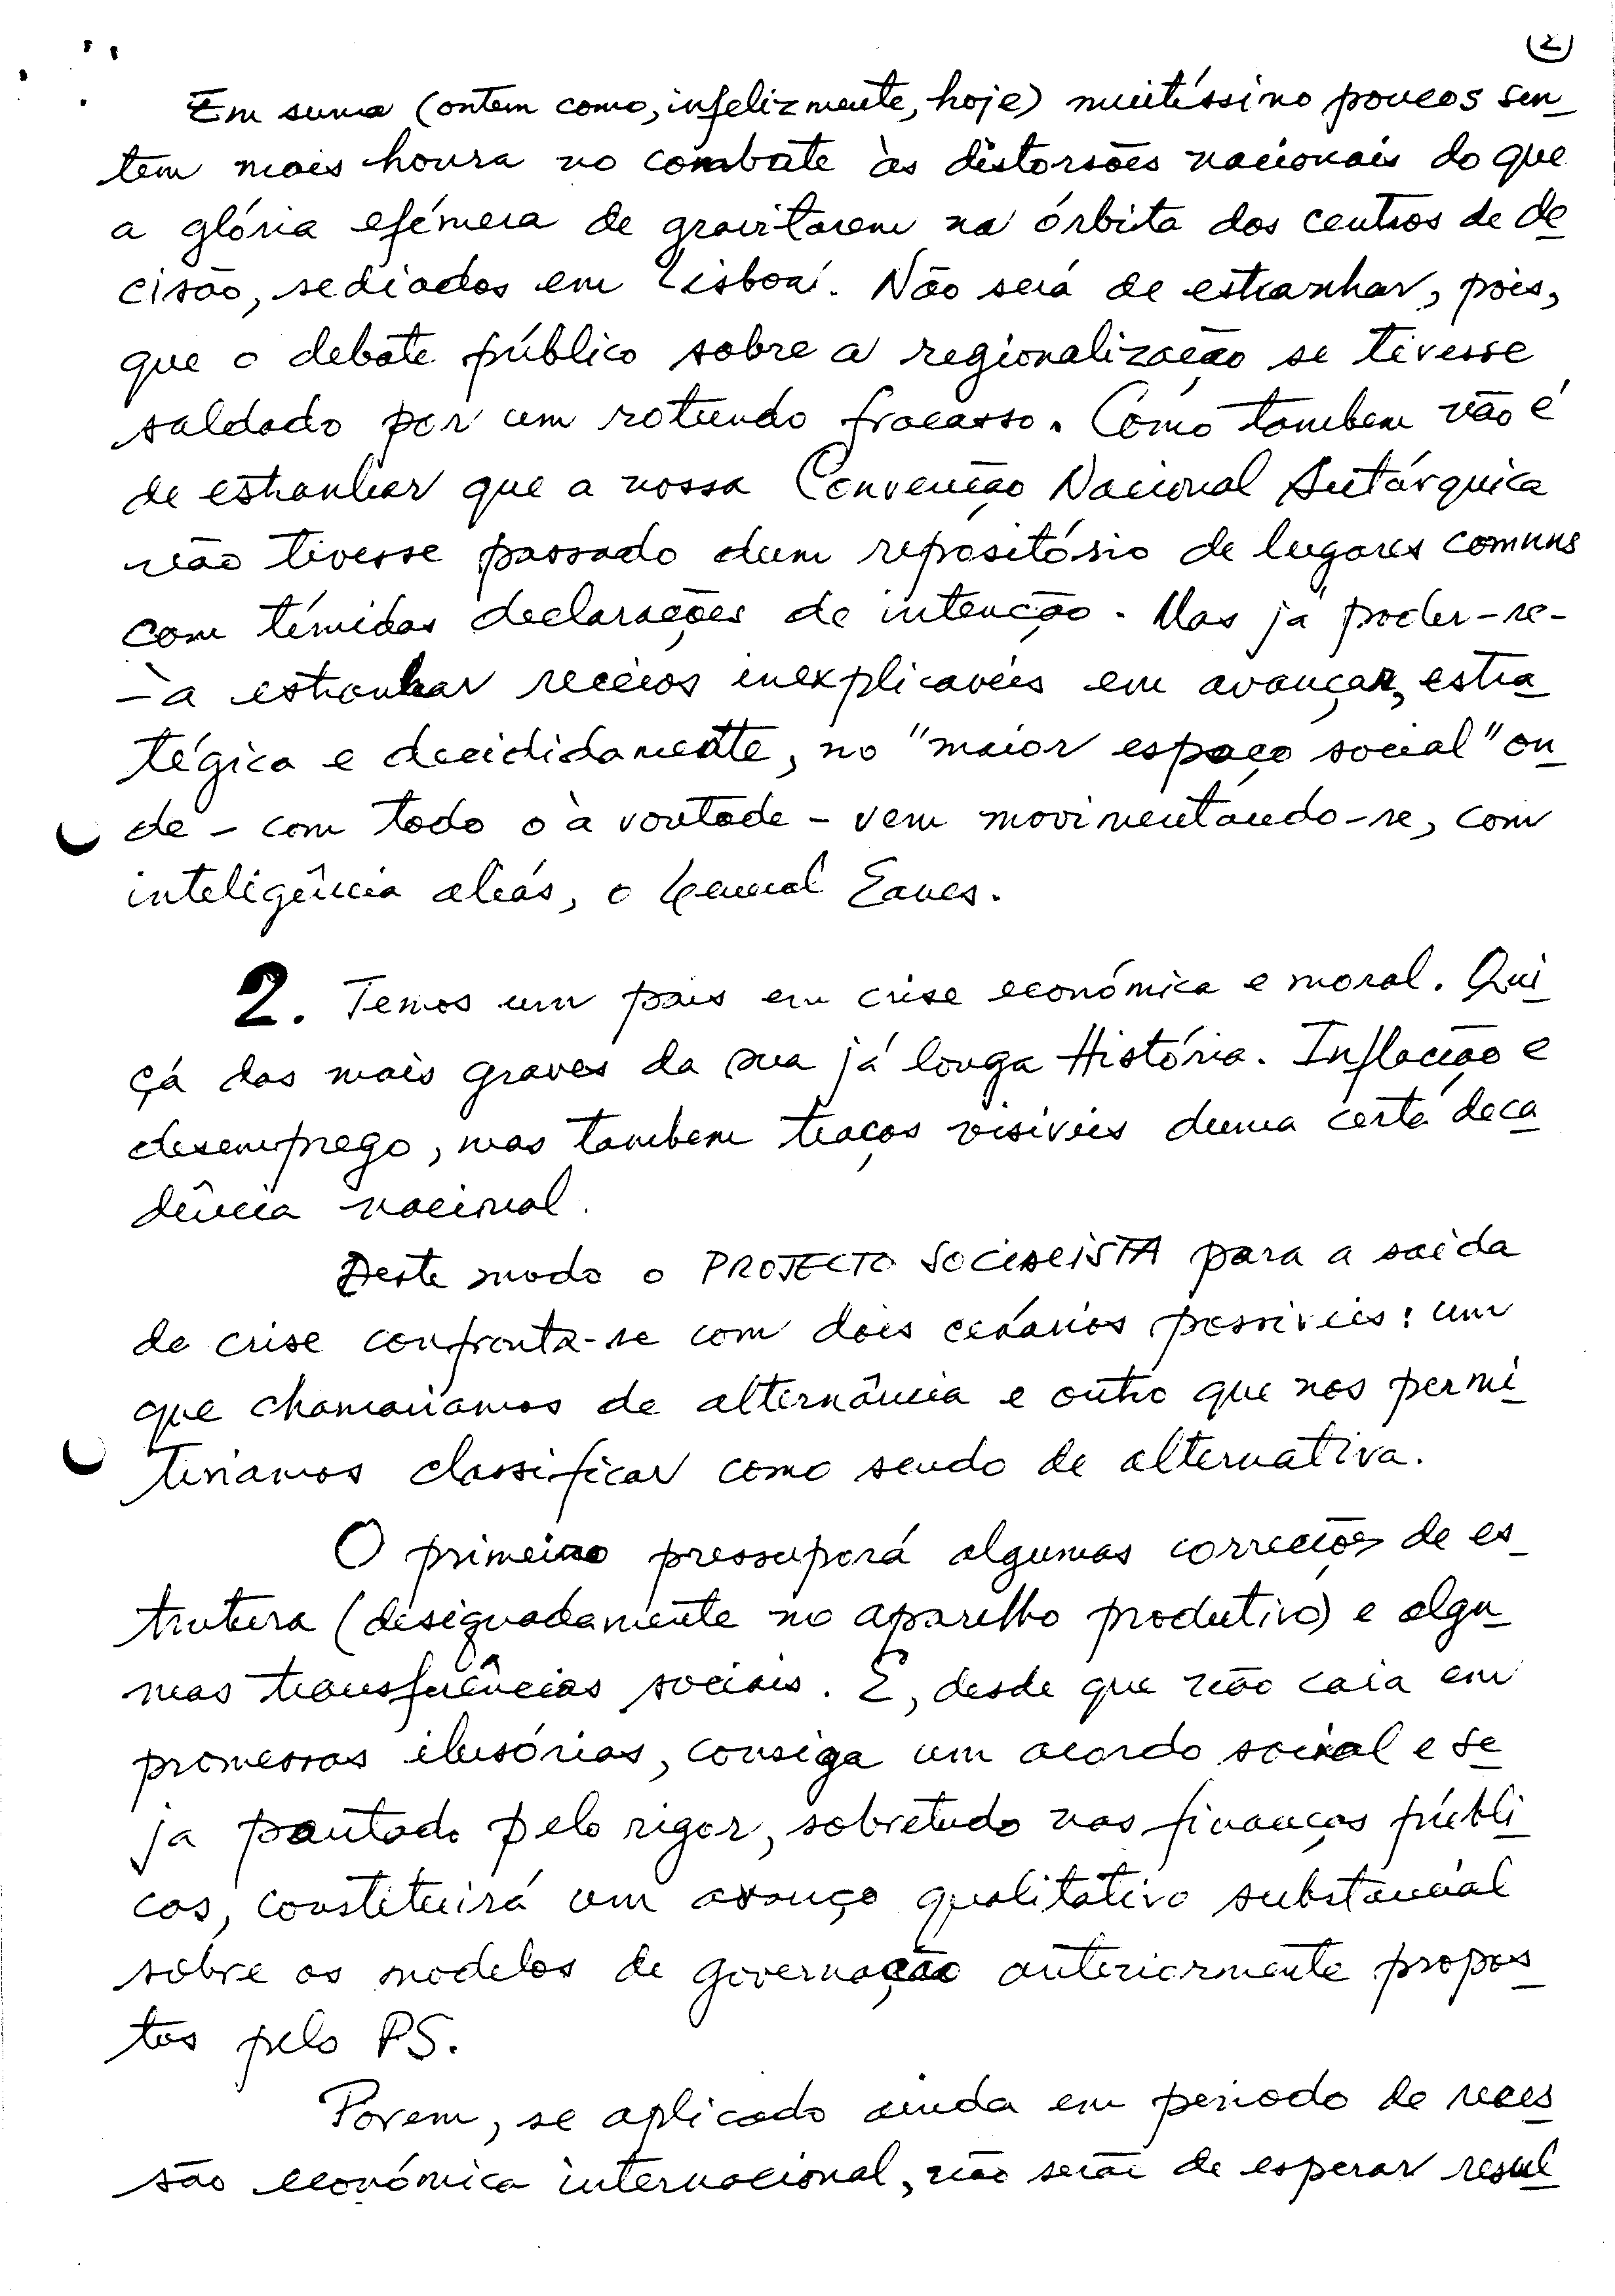 (2)
Em suma (ontem como, infelizmente, hoje) muitíssimo poucos sen
tem mais honra no combate às distorsões nacionais do que
a glória efémera de gravitarem na órbita dos centros de de
cisão, sediados em Lisboa. Não será de estranhar, pois,
que o debate público sobre a regionalização se tivesse
saldado por um rotundo fracasso. Como tambem não é
de estranhar que a nossa Convenção Nacional Autárquica
não tivesse passado dum repositório de lugares comuns
com tímidas declarações de intenção. Mas já poder-se-
-á estranhar receios inexplicaveis em avançar, estra
tégica e decididamente, no "maior espaço social" on
de - com todo o à vontade - vem movimentando-se, com
inteligência aliás, o General Eanes.
2. Temos um pais em crise económica e moral. Qui
çá das mais graves da sua já longa História. Inflação e
desemprego, mas tambem traços visiveis duma certa deca
dência nacional.
Deste modo o PROJECTO SOCIALISTA para a saida
da crise confronta-se com dois cenários possiveis: um
que chamariamos de alternância e outro que nos permi
tiriamos classificar como sendo de alternativa.
O primeiro pressuporá algumas correcções de es
trutura (designadamente no aparelho produtivo) e algu
mas transferências sociais. E, desde que não caia em
promessas ilusórias, consiga um acordo social e se
ja pautado pelo rigor, sobretudo nas finanças públi
cas, constituirá um avanço qualitativo substancial
sobre os modelos de governação anteriormente propos
tos pelo PS.
Porem, se aplicado ainda em periodo de reces
são económica internacional, não serão de esperar resul